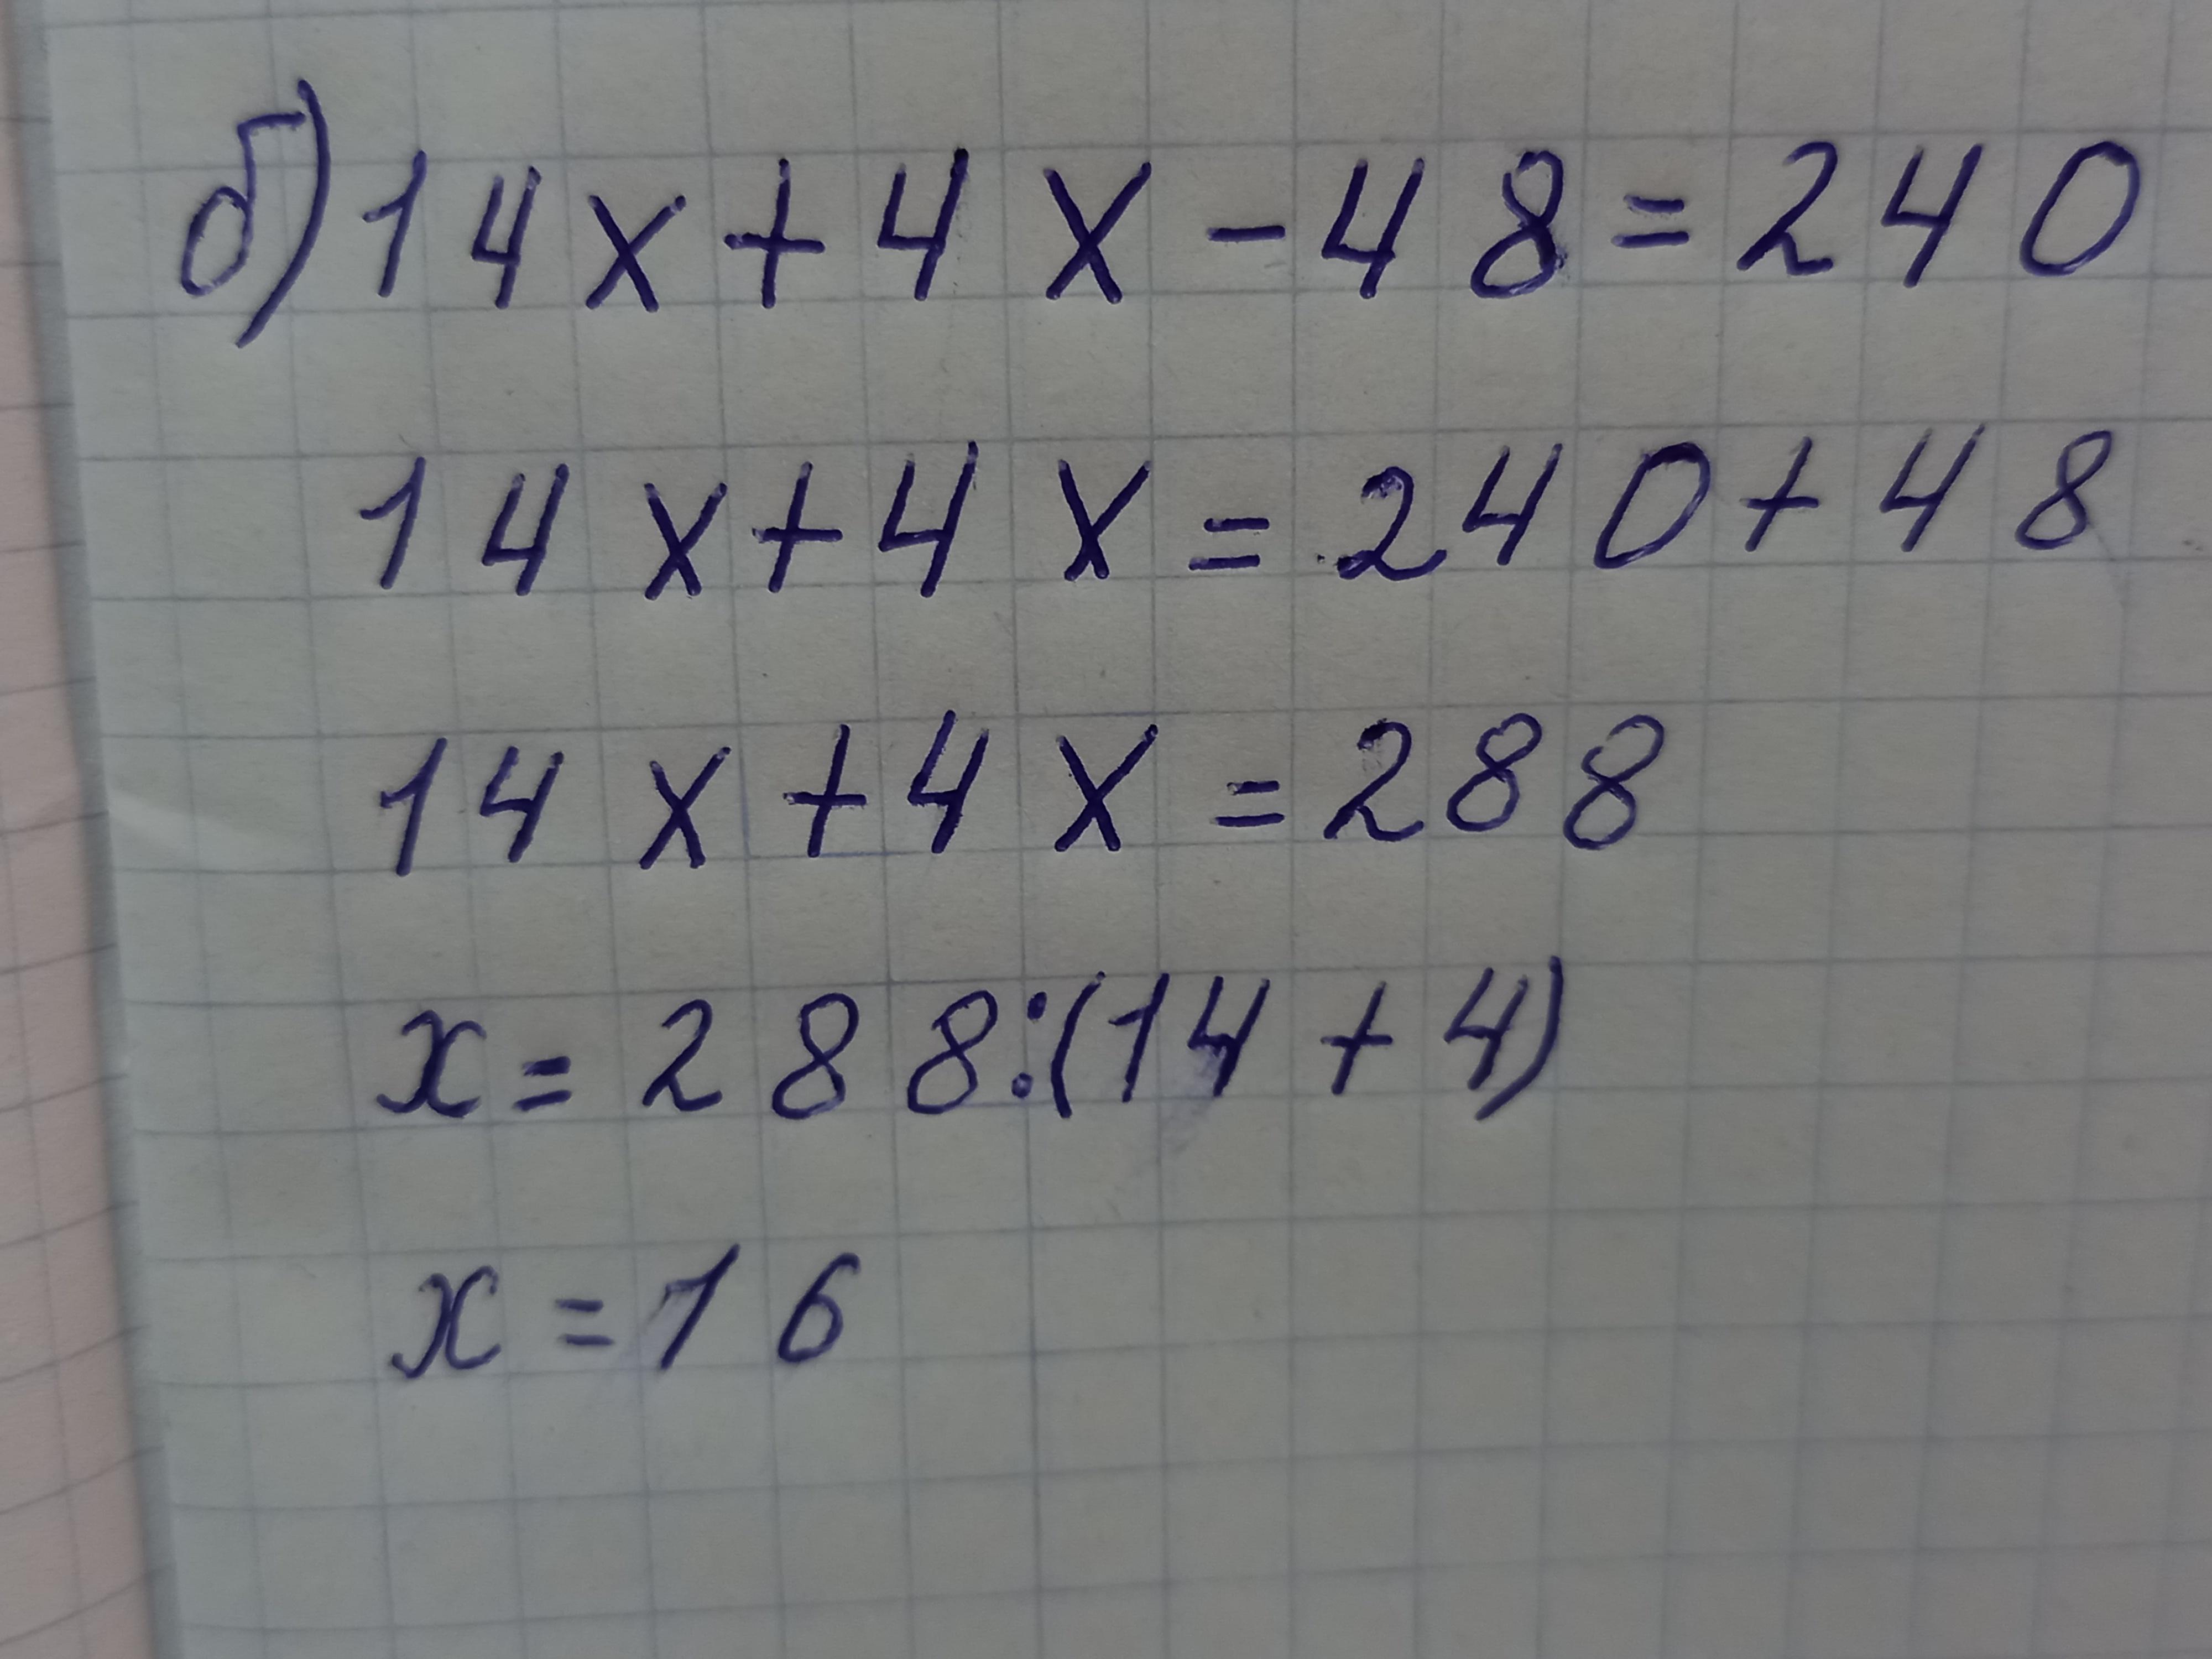 б) 14x + 4x - 48 = 240
14x + 4x = 240 + 48
14x + 4x = 288
x = 288 : (14 + 4)
x = 16